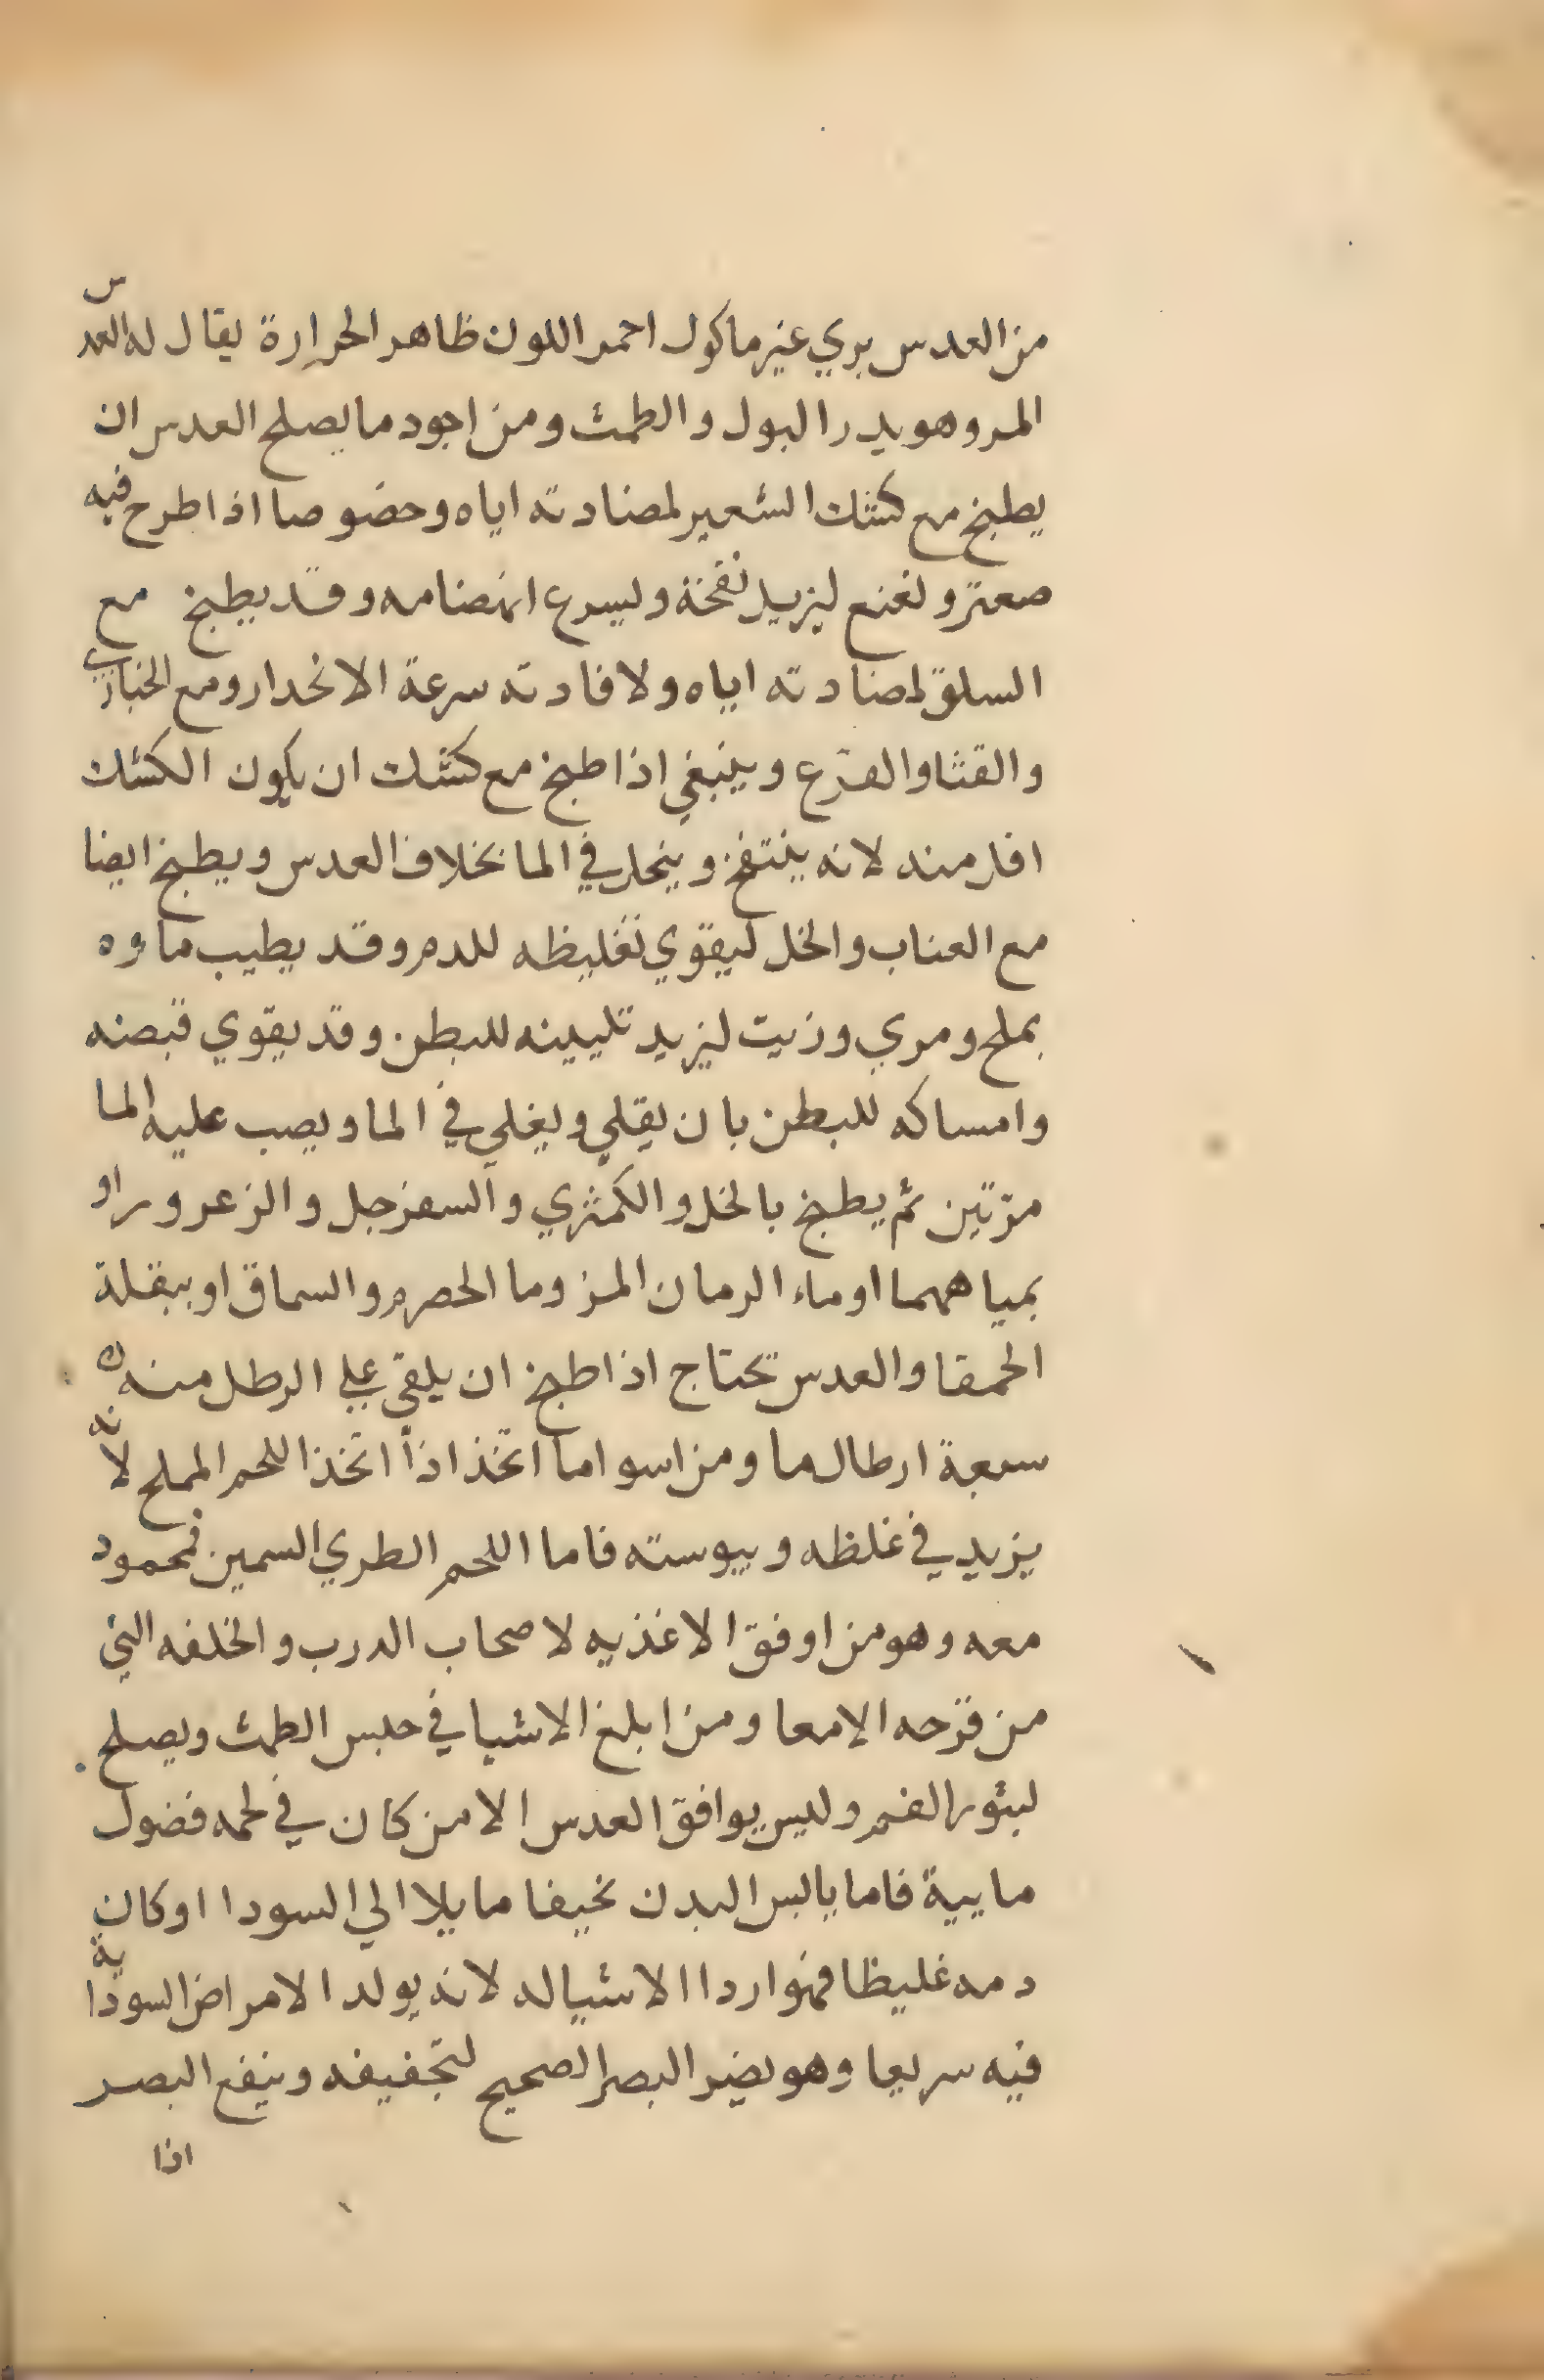 من العدس بري غير ماكول احمر اللون ظاهر الحرارة يقال له العدس
المر وهو يدر البول والطمث ومن اجود ما يصلح العدس ان
يطبخ مع كشك الشعير لمضادته اياه وخصوصا اذا طرح فيه
صعتر ونعنع ليزيد نفخة وليسرع انهضامه وقد يطبخ مع
السلق لمضادته اياه ولافادته سرعة الانحدار ومع الخبازي
والقثا والقرع وينبغي اذا طبخ مع كشك ان يكون الكشك
اقل منه لانه ينتفخ وينحل في الما بخلاف العدس ويطبخ ايضا
مع العناب والخل ليقوي تغليظه للدم وقد يطيب ماوه
بملح ومري وزيت ليزيد تليينه للبطن وقد يقوي قبضه
وامساكه للبطن بان يقلي ويغلي في الما ويصب عليه الما
مرتين ثم يطبخ بالخل والكمثري والسفرجل والزعرور او
بمياههما او ماء الرمان المز وما الحصرم والسماق او ببقلة
الحمقا والعدس تحتاج اذا طبخ ان يلقي علي الرطل منه
سبعة ارطال ما ومن اسوا ما اتخذ اذا اتخذ اللحم المملح لانه
يزيد في غلظه ويبوسته فاما اللحم الطري السمين فمحمود
معه وهو من اوفق الاغذيه لاصحاب الدرب والخلفه التي
من قرحه الامعا ومن ابلغ الاشيا في حبس الطمث ويصلح
لبثور الفم وليس يوافق العدس الا من كان في لحمه فضول
مايية فاما يابس البدن نحيفا مايلا الي السودا او كان
دمه غليظا فهو اردا الاشيا له لانه يولد الامراض السوداية
فيه سريعا وهو يضر البصر الصحيح لتجفيفه وينفع البصر
اذا